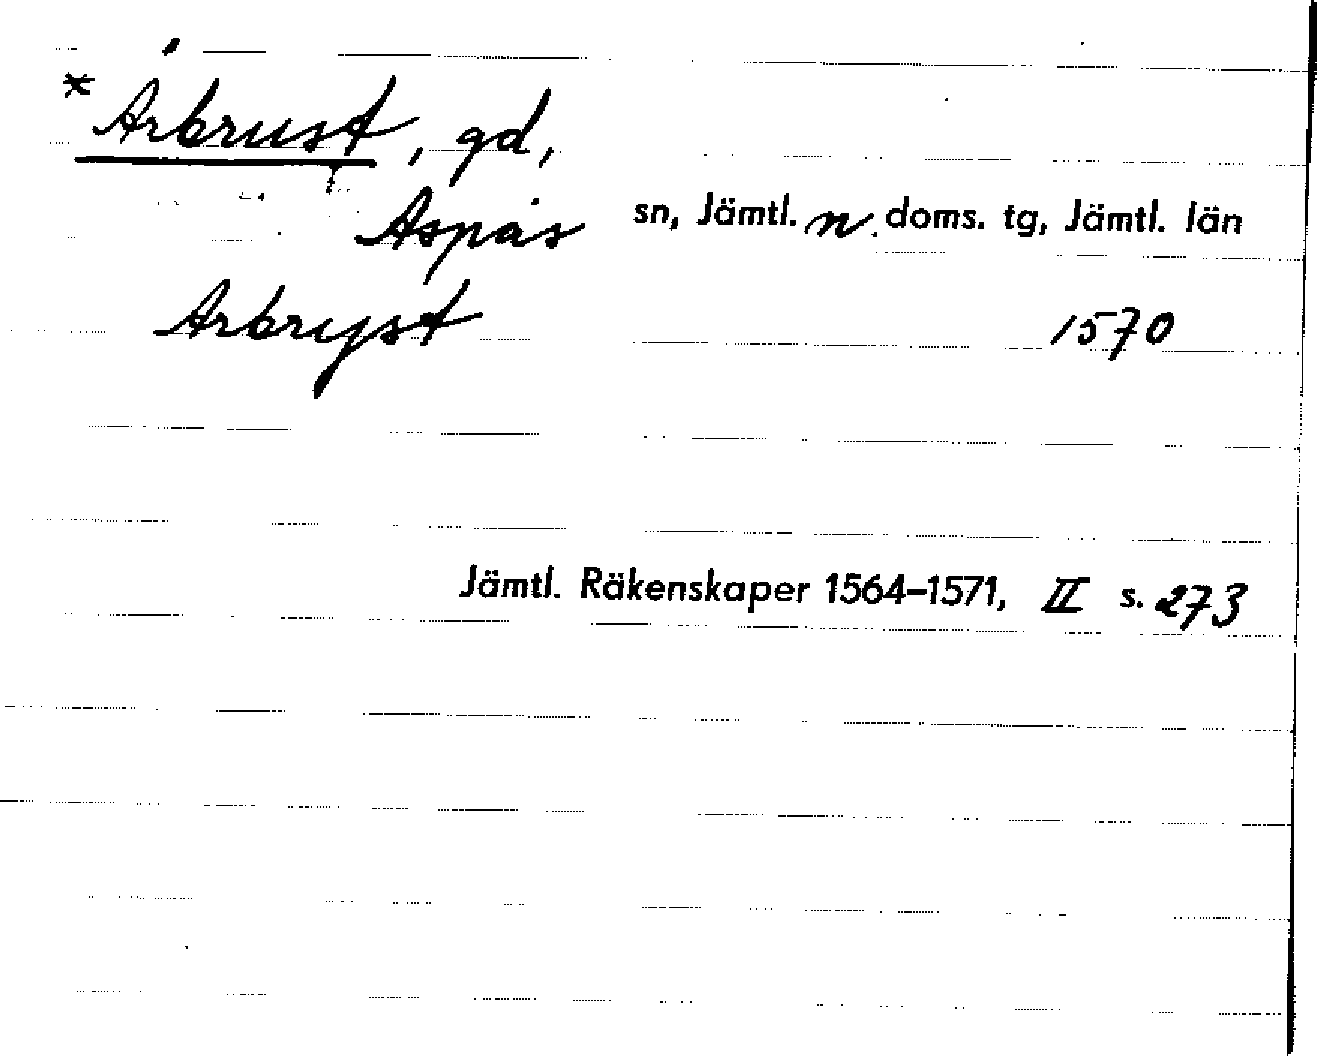 * Årbrust, gd,
Aspås sn, Jämtl. n. doms. tg, Jämtl. län
Arbryst 1570
Jämtl. Räkenskaper 1564–1571, II s. 273